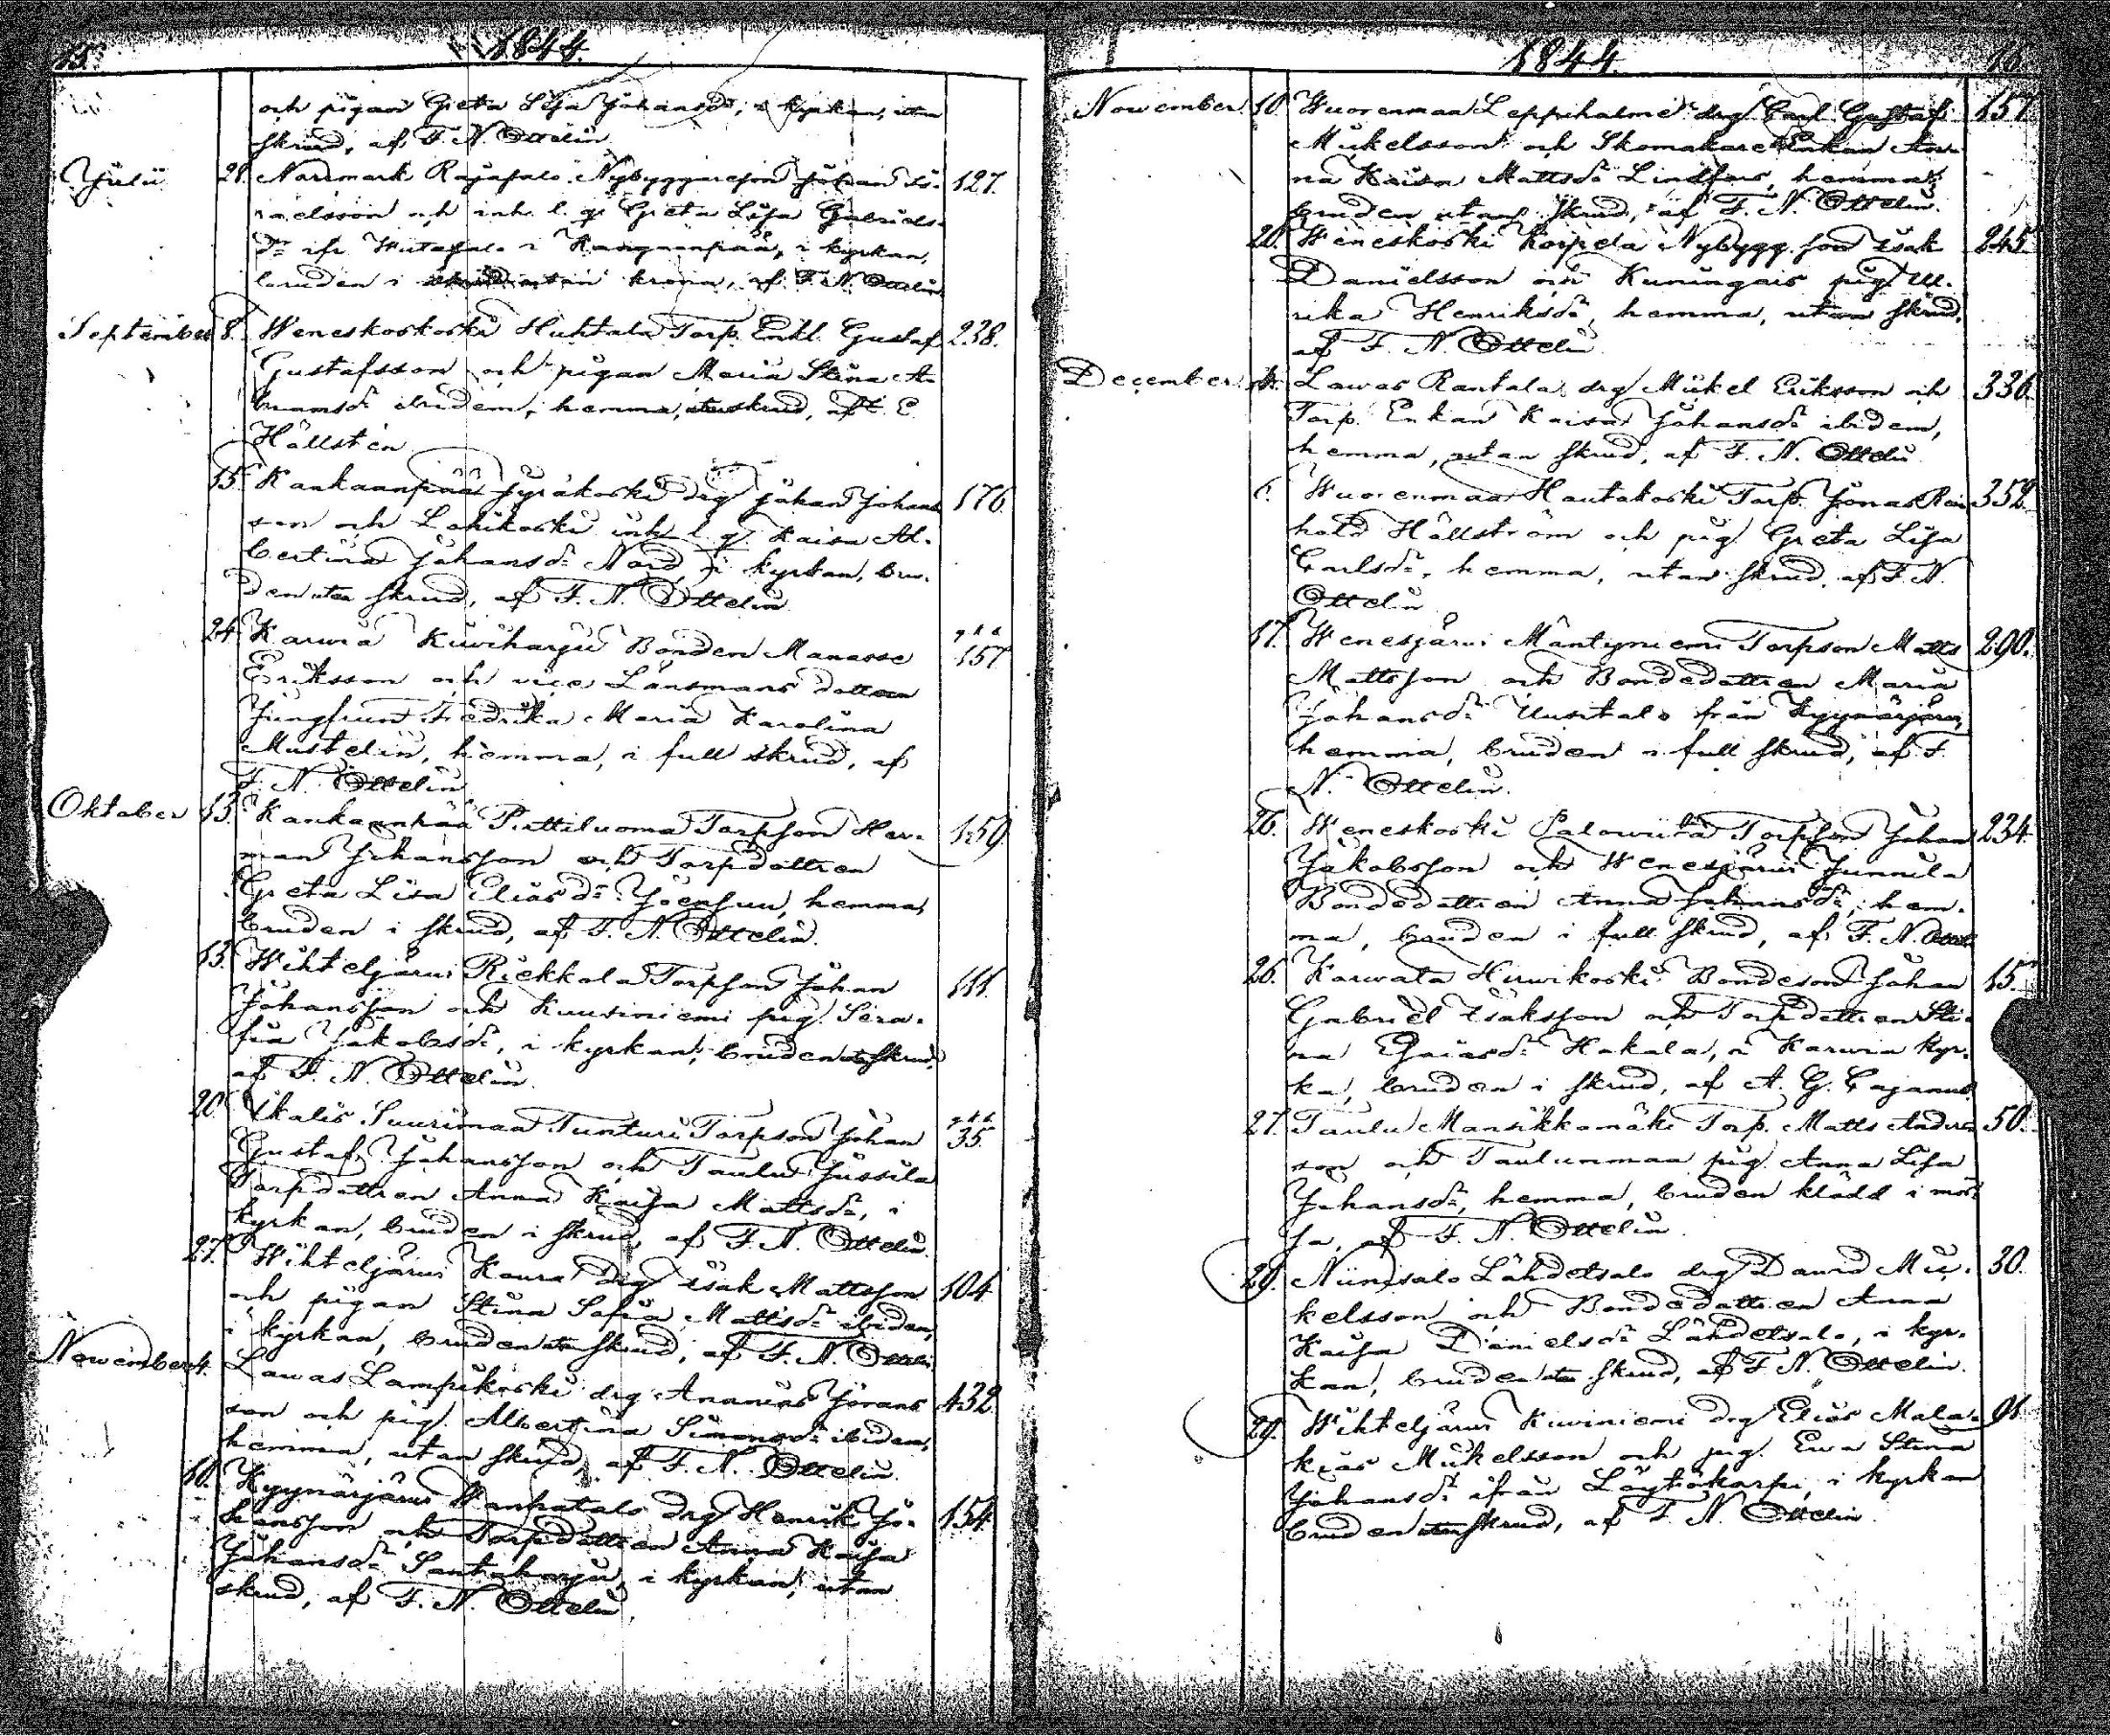 15.
1844.
och pigan Greta Lisa Johansd:r, i kyrkan, utan
skrud, af F. N. Ottelin
Julii 28. Narrmark Rajasalo Nybyggaresson Johan Is- 127.
raelsson och inh. l. q. Greta Lisa Gabriels-
d:r ifr. i Kangaanpää, i kyrkan,
bruden i skrud utan krona, af F. N. Ottelin
September 8. Weneskoskoski Huhtala Torp. Enkl. Gustaf 238.
Gustafsson och pigan Maria Stina A-
bramsd:r ibidem, hemma, utan skrud, af E.
Hällstén
15. Kankaanpää Jyräkoski drg Johan Johans 176
son och Lohikoski inh. l. q. Kaisa Al-
bertina Johansd:r Nord, i kyrkan, bru-
den utan skrud, af F. N. Ottelin
24. Karvia Kiviharju Bonden Manasse 157
Eriksson och vice Länsmans dottren
Jungfrun Fredrika Maria Karolina
Mustelin, hemma, i full skrud, af
F. N. Ottelin
Oktober 13. Kankaanpää Pirttiluoma Torpson Her- 159
man Johansson och Torpdottren
Greta Lisa Eliasd:r Joensuu, hemma,
bruden i skrud, af F. N. Ottelin.
13. Wihteljärvi Riekkola Torpson Johan 111.
Johansson och Kuusiniemi pig. Sera-
fia Jakobsd:r, i kyrkan, bruden utan skrud,
af F. N. Ottelin
20. Ikalis Suurimaa Tunturi Torpson Johan 35.
Gustaf Johansson och Taulu Jussila
Torpdottren Anna Kaisa Mattsd:r, i
kyrkan, bruden i skrud, af F. N. Ottelin.
27. Wihteljärvi Kaura drg Isak Mattsson 104
och pigan Stina Safia Mattsd:r ibidem,
i kyrkan, bruden utan skrud, af F. N. Ottelin
November 4. Lavas Lampikoski drg Ananias Jörans 432.
son och pig. Albertina Simonsd:r ibidem,
hemma, utan skrud, af F. N. Ottelin.
10. Kyynärjärvi Wanhatalo drg Henrik Jo- 154
hansson och Torpdottren Anna Kaisa
Johansd:r Santaharju, i kyrkan, utan
skrud, af F. N. Ottelin,
1844. 16.
November 10. Wuorenmaa Leppiholme drg Carl Gustaf 157.
Mickelsson och Skomakare Enkan An-
na Kaisa Mattsd:r Lindfors, hemma,
bruden utan skrud, af F. N. Ottelin.
20. Weneskoski Korpela Nybygg. son Isak 245.
Danielsson och Kuningais pig. Ul-
rika Henriksd:r, hemma, utan skrud,
af F. N. Ottelin
December 1. Lavas Rantala drg Mickel Eriksson och 336.
Torp. Enkan Kaisa Johansd:r ibidem,
hemma, utan skrud, af F. N. Ottelin
6. Wuorenmaa Hautakoski Torp. Jonas Rein 352.
hold Hällström och pig. Greta Lisa
Carlsd:r, hemma, utan skrud, af F. N.
Ottelin
17. Wenesjärvi Mäntyniemi Torpson Matts 290.
Mattsson och Bondedottren Maria
Johansd:r Uusitalo från Kyynärjärvi,
hemma, bruden i full skrud, af F.
N. Ottelin.
26. Weneskoski Palowiita Torpson Johan 234.
Jakobsson och Wenesjärvi Junnila
Bondedottren Anna Johansd:r, hem-
ma, bruden i full skrud, af F. N. Ottel.
26. Karwata Hirwikoski Bondeson Johan 15.
Gabriel Isaksson och Torpdottren Sti-
na Esaiasd:r Hakala, i Karvia kyr-
ka, bruden i skrud, af A. G. Cajanus.
27. Taulu Mansikkamäki Torp. Matts Anders 50.
son och Taulunmaa pig. Anna Lisa
Johansd:r, hemma, bruden klädd i mös-
sa, af F. N. Ottelin
29. Niinisalo Lähdetsalo drg David Mic- 30.
kelsson och Bondedottren Anna
Kaisa Danielsd:r Lähdetsalo, i kyr-
kan, bruden utan skrud, af F. N. Ottelin.
29. Wihteljärvi Kiviniemi drg Elias Mala- 91
kias Mickelsson och pig. Eva Stina
Johansd:r ifrån Löytökorpi, i kyrkan
bruden utan skrud, af F. N. Ottelin